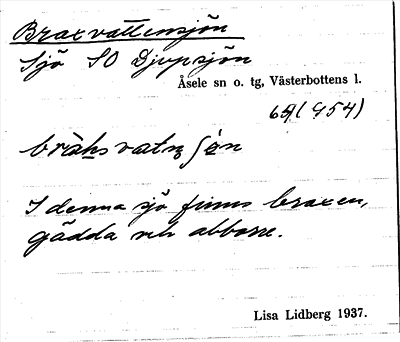 Braxvattensjön
Sjö SO Djupsjön
Åsele sn o. tg, Västerbottens l.
(954)
I denna sjö finns braxen,
gädda och abborre.
Lisa Lidberg 1937.